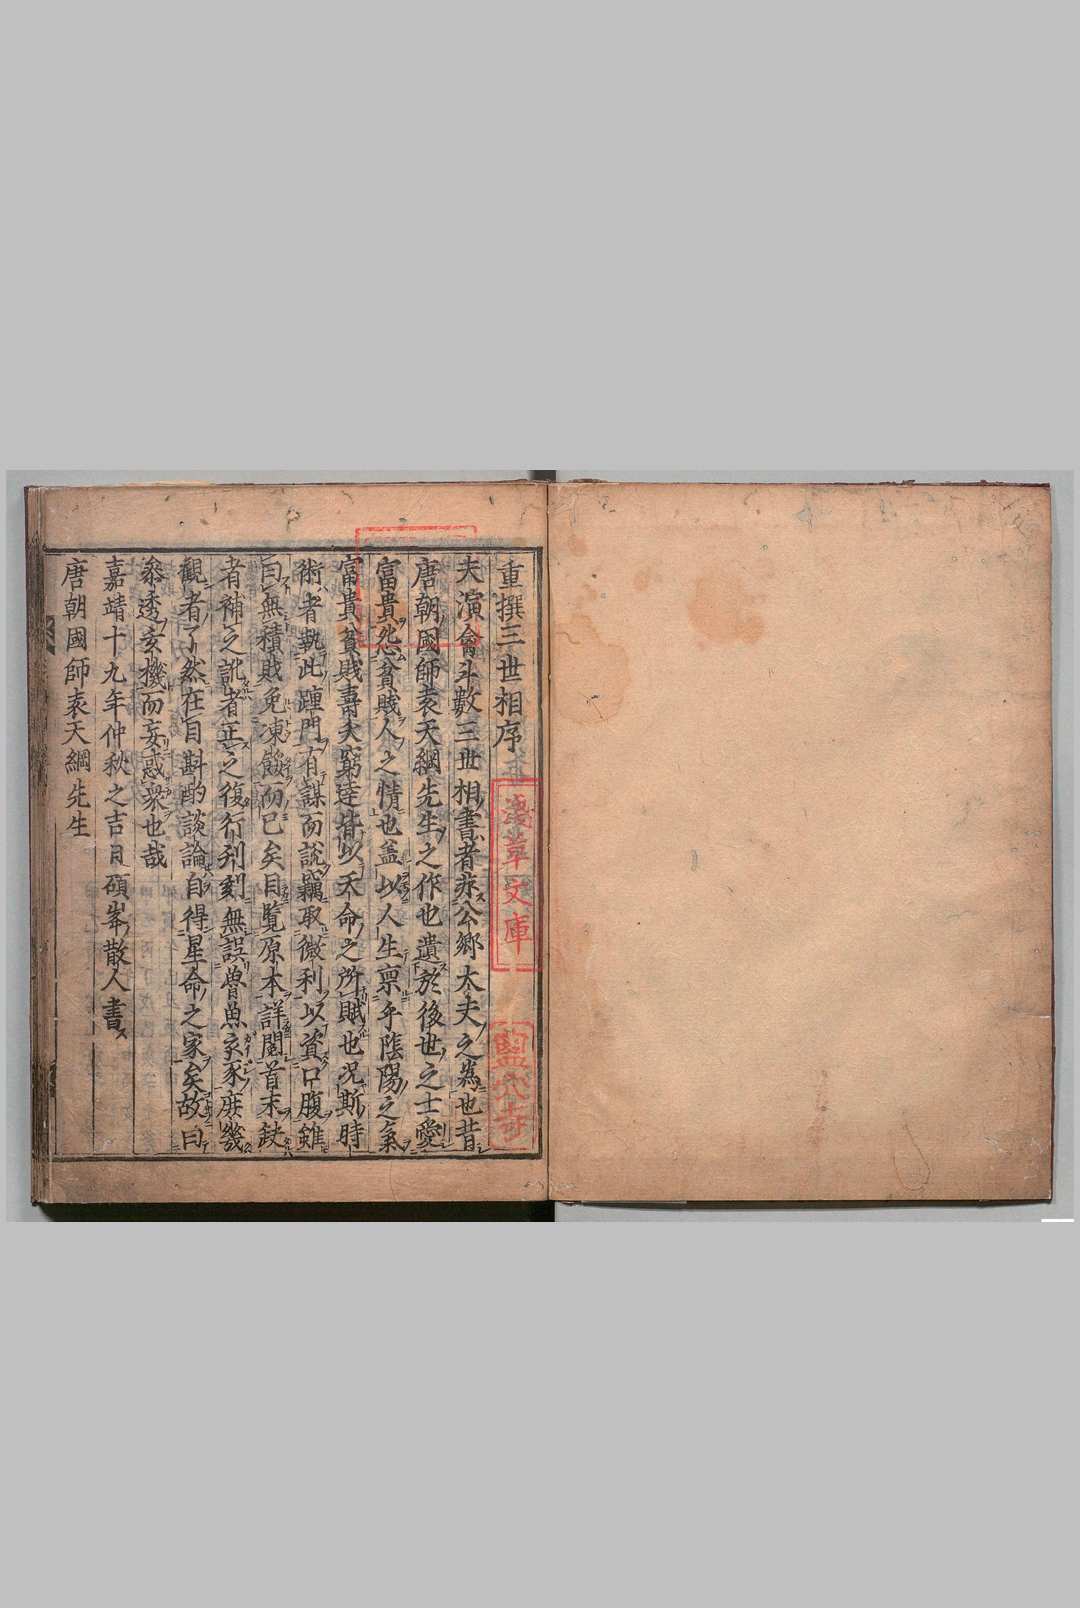 重撰三世相序
夫演禽斗数三世相書者非公郷太夫之為也昔
唐朝國師袁天綱先生之作也遺於後世之士愛
富貴怨貧賎人之情也盖以人生禀乎陰陽之氣
富貴貧賎壽夭窮達皆以天命之所賦也况斯時
術者執此踵門有謀而説竊取微利以資口腹雖
曰無積賎免凍餒而已矣目覧原本詳閲首末缺
者補之訛者正之復行刋刻無誤曽魚亥豕庻幾
觀者了然在目斟酌談論自得星命之家矣故曰
叅透玄機而妄惑衆也哉
嘉靖十九年仲秋之吉月碩峯散人書
唐朝國師袁天綱先生
淺草文庫